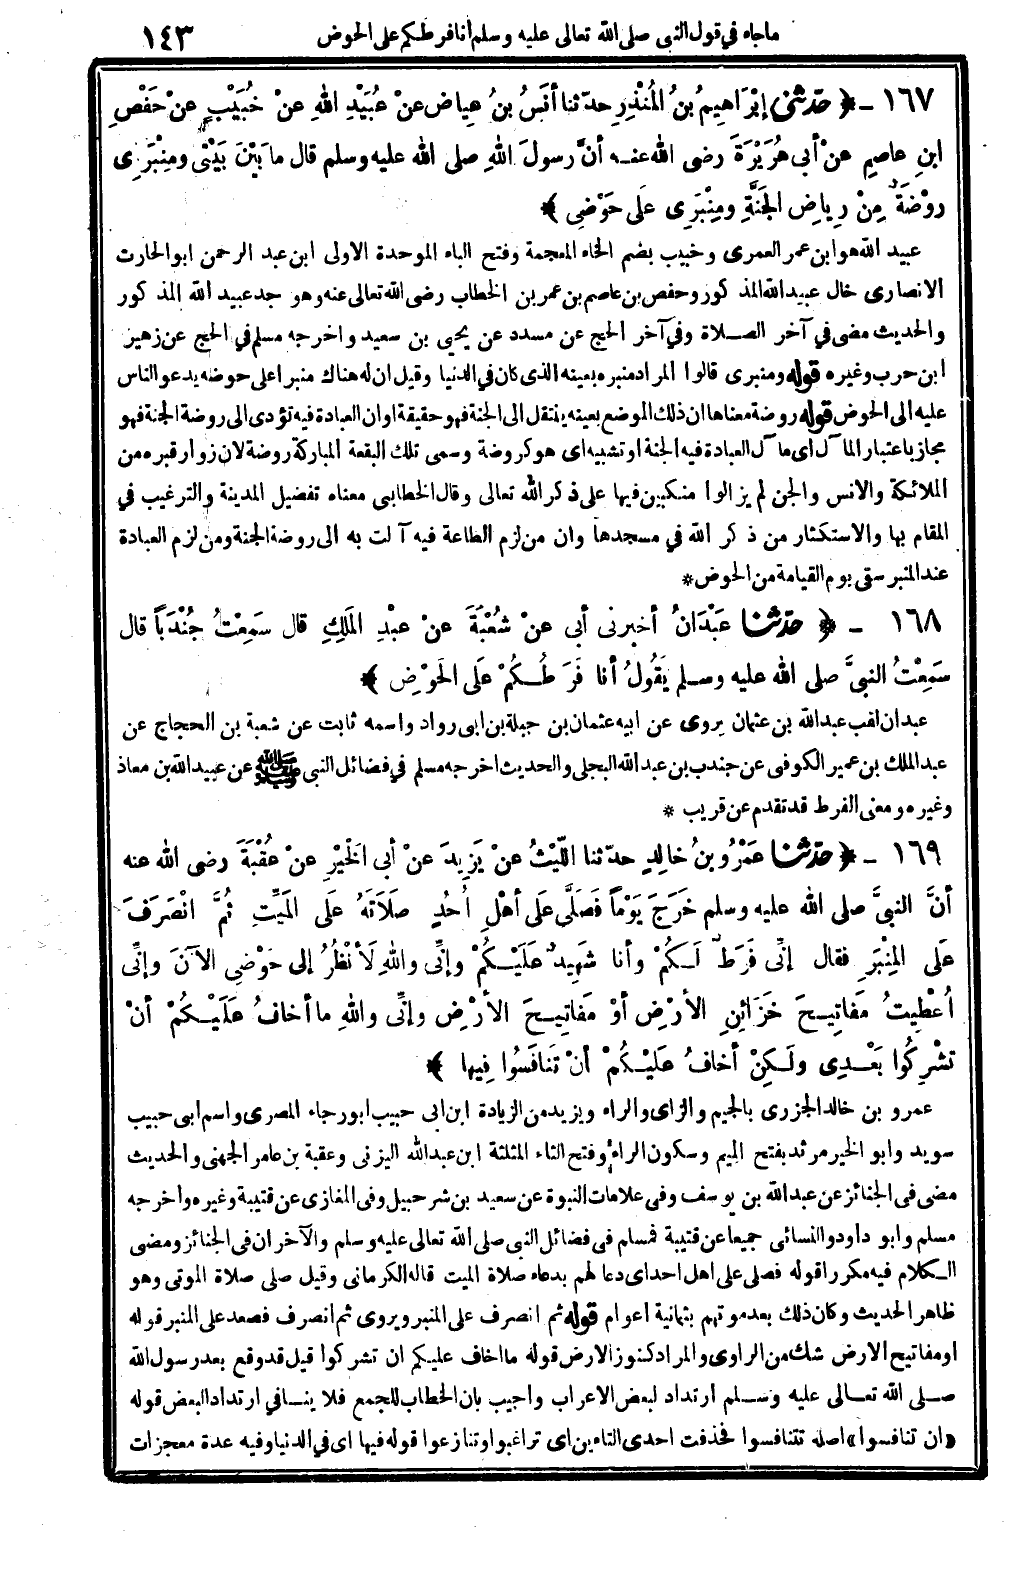 ماجاء في قول النبى صلى الله تعالى عليه وسلم أنا فرطكم على الحوض ١٤٣
١٦٧ - ﴿ حدّثنى إبْرَاهِيمُ بنُ المُنْذِرِ حدّثنا أنَسُ بنُ عِياضٍ عنْ عُبَيْدِ اللهِ عنْ خُبَيْبٍ عنْ حَفْصِ
ابنِ عاصِمٍ عنْ أبى هُرَيْرَةَ رضى الله عنه أنَّ رسولَ اللهِ صلى الله عليه وسلم قال ما بَيْنَ بَيْتى ومِنْبَرِى
روْضَةٌ مِنْ رِياضِ الجَنَّةِ ومِنْبَرِى عَلى حَوْضِى ﴾
عبيد الله هو ابن عمر العمرى وخبيب بضم الخاء المعجمة وفتح الباء الموحدة الاولى ابن عبد الرحمن ابو الحارث
الانصارى خال عبيد الله المذكور وحفص بن عاصم بن عمر بن الخطاب رضى الله تعالى عنه وهو جد عبيد الله المذكور
والحديث مضى في آخر الصلاة وفي آخر الحج عن مسدد عن يحيى بن سعيد واخرجه مسلم في الحج عن زهير
ابن حرب وغيره قوله ومنبرى قالوا المراد منبره بعينه الذى كان في الدنيا وقيل ان له هناك منبرا على حوضه يدعو الناس
عليه الى الحوض قوله روضة معناها ان ذلك الموضع بعينه ينتقل الى الجنة فهو حقيقة او ان العبادة فيه تؤدى الى روضة الجنة فهو
مجاز باعتبار المآل اى مآل العبادة فيه الجنة او تشبيه اى هو كروضة وسمى تلك البقعة المباركة روضة لان زوار قبره من
الملائكة والانس والجن لم يزالوا منكبين فيها على ذكر الله تعالى وقال الخطابى معناه تفضيل المدينة والترغيب في
المقام بها والاستكثار من ذكر الله في مسجدها وان من لزم الطاعة فيه آلت به الى روضة الجنة ومن لزم العبادة
عند المنبر سقى يوم القيامة من الحوض *
١٦٨ - ﴿ حدّثنا عَبْدَانُ أخبرنى أبى عنْ شُعْبَةَ عنْ عبْدِ المَلِكِ قال سَمِعْتُ جُنْدَباً قال
سَمِعْتُ النبىَّ صلى الله عليه وسلم يَقُولُ أنا فَرَطُكُمْ عَلى الحَوْضِ ﴾
عبدان لقب عبد الله بن عثمان يروى عن ابيه عثمان بن جبلة بن ابى رواد واسمه ثابت عن شعبة بن الحجاج عن
عبد الملك بن عمير الكوفى عن جندب بن عبد الله البجلى والحديث اخرجه مسلم في فضائل النبى ﷺ عن عبيد الله بن معاذ
وغيره ومعنى الفرط قد تقدم عن قريب *
١٦٩ - ﴿ حدّثنا عَمْرُو بنُ خالِدٍ حدّثنا اللّيْثُ عنْ يَزِيدَ عنْ أبى الخَيْرِ عنْ عُقْبَةَ رضى الله عنه
أنَّ النبىَّ صلى الله عليه وسلم خَرَجَ يَوْماً فَصَلَّى عَلى أهْلِ أُحُدٍ صَلَاتَهُ عَلَى المَيِّتِ ثُمَّ انْصَرَفَ
عَلى المِنْبَرِ فقال إنِّى فَرَطٌ لَكُمْ وأنا شَهِيدٌ عَلَيْكُمْ وإنِّى واللهِ لَأنْظُرُ إلى حَوْضِى الآنَ وإنِّى
أُعْطِيتُ مَفاتِيحَ خَزَائِنِ الأرْضِ أوْ مَفاتِيحَ الأرْضِ وإنِّى واللهِ ما أخافُ عَلَيْكُمْ أنْ
تشْرِكُوا بَعْدِى ولَكِنْ أخافُ عَلَيْكُمْ أنْ تَنافَسُوا فِيها ﴾
عمرو بن خالد الجزرى بالجيم والزاى والراء ويزيد من الزيادة ابن ابى حبيب ابو رجاء المصرى واسم ابى حبيب
سويد وابو الخير مرثد بفتح الميم وسكون الراء وفتح الثاء المثلثة ابن عبد الله اليزنى وعقبة بن عامر الجهنى والحديث
مضى فى الجنائز عن عبد الله بن يوسف وفى علامات النبوة عن سعيد بن شرحبيل وفى المغازى عن قتيبة وغيره واخرجه
مسلم وابو داود والنسائى جميعا عن قتيبة فمسلم فى فضائل النبى صلى الله تعالى عليه وسلم والآخران فى الجنائز ومضى
الكلام فيه مكررا قوله فصلى على اهل احد اى دعا لهم بدعاء صلاة الميت قاله الكرمانى وقيل صلى صلاة الموتى وهو
ظاهر الحديث وكان ذلك بعد موتهم بثمانية اعوام قوله ثم انصرف على المنبر ويروى ثم انصرف فصعد على المنبر قوله
او مفاتيح الارض شك من الراوى والمراد كنوز الارض قوله ما اخاف عليكم ان تشركوا قيل قد وقع بعد رسول الله
صلى الله تعالى عليه وسلم ارتداد لبعض الاعراب واجيب بان الخطاب للجمع فلا ينافي ارتداد البعض قوله
«ان تنافسوا» اصله تتنافسوا فحذفت احدى التاءين اى تراغبوا وتنازعوا قوله فيها اى في الدنيا وفيه عدة معجزات